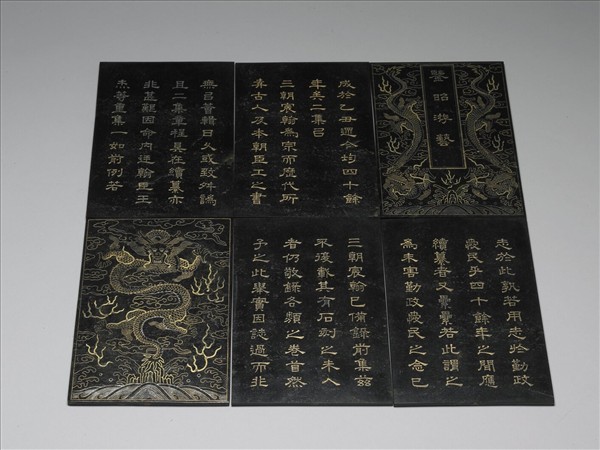 鑒昭游藝
成於乙丑迄今均四十餘
年矣二集㠯
三朝宸翰為宗而歷代所
弆古人及本朝臣工之書
無㠯薈輯日久或致舛譌
且二集章程具在續纂亦
非甚艱因命內廷翰臣王
杰等重集一如前例若
三朝宸翰已備錄前集茲
不復載其有石刻之未入
者仍敬錄各類之卷首然
予之此舉實因誌過而非
志於此孰若用志於勤政
愛民乎四十餘年之間應
續纂者又纍纍若此謂之
為未害勤政愛民之念已